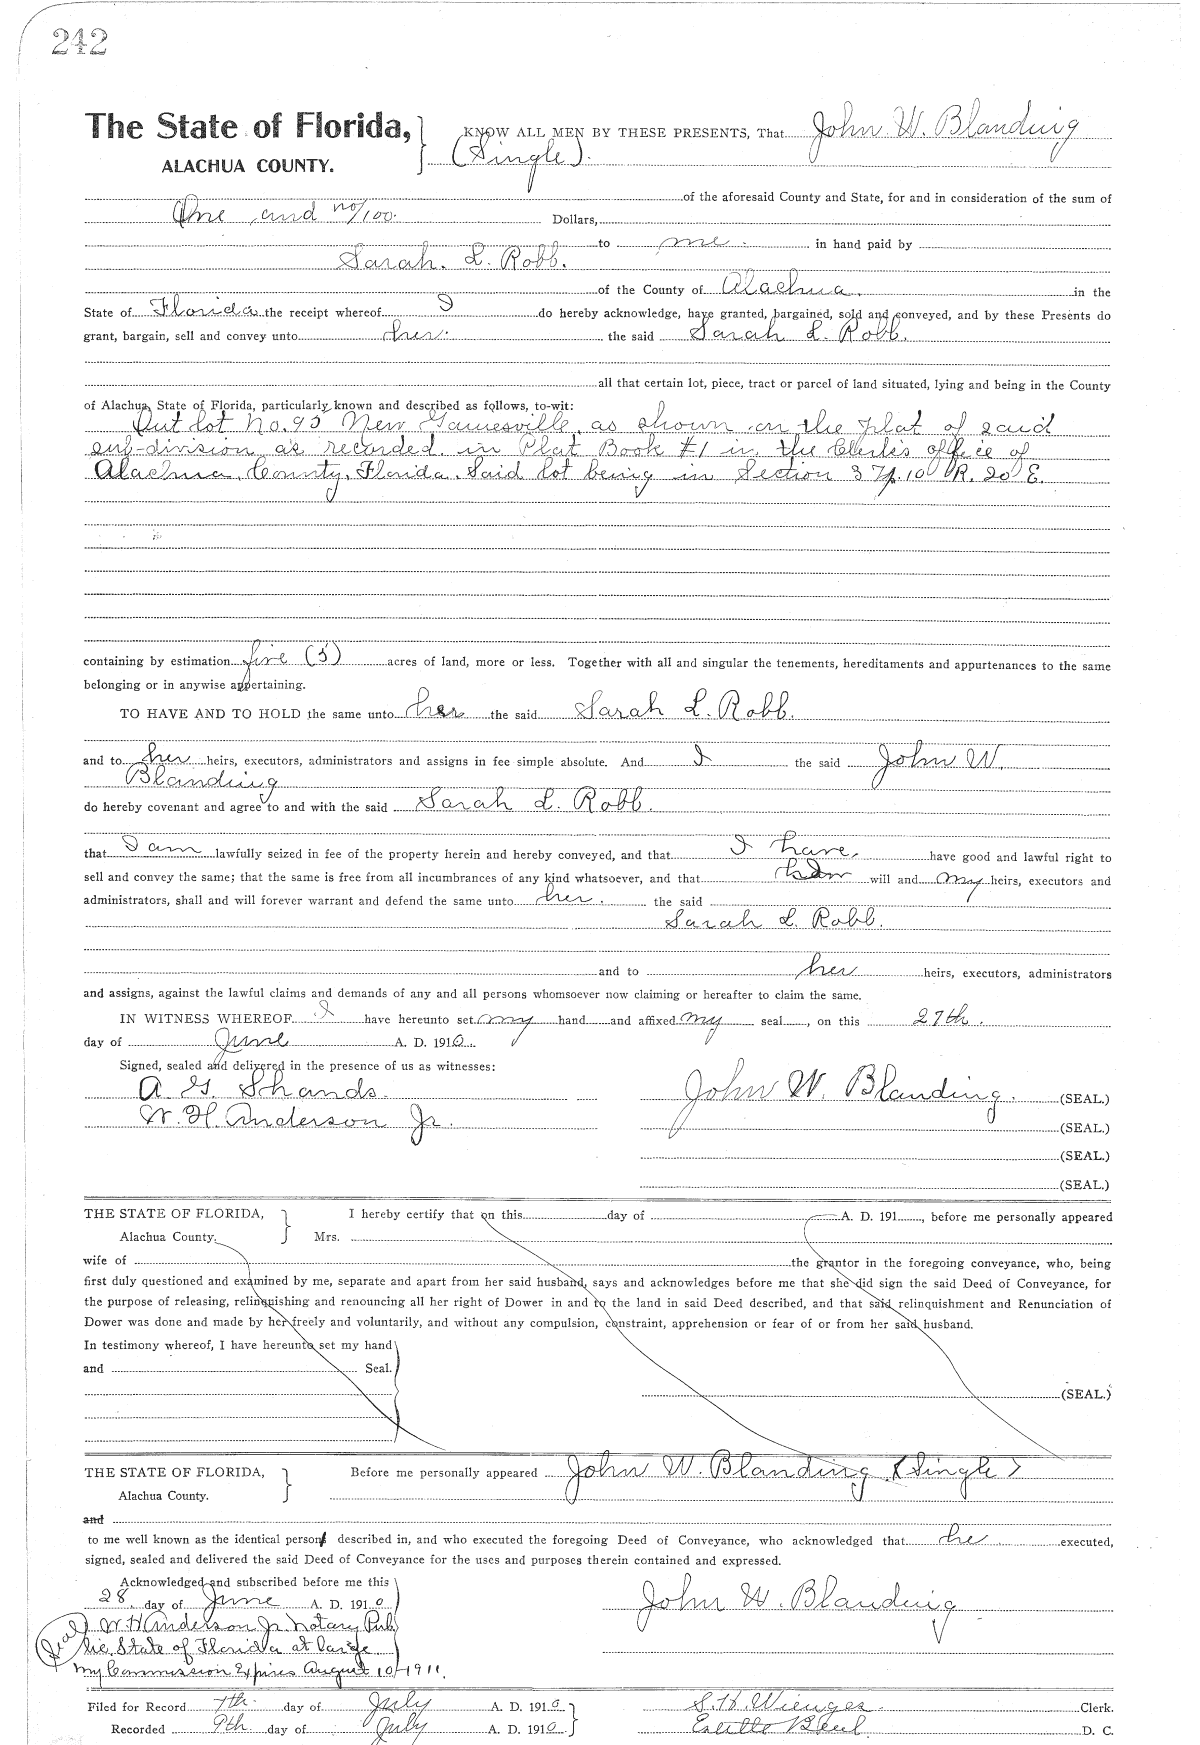 242
The State of Florida, KNOW ALL MEN BY THESE PRESENTS, That John W. Blanding
ALACHUA COUNTY. (Single).
of the aforesaid County and State, for and in consideration of the sum of
One and no/100. Dollars,
to me. in hand paid by
Sarah. L. Robb.
of the County of Alachua. in the
State of Florida the receipt whereof I do hereby acknowledge, have granted, bargained, sold and conveyed, and by these Presents do
grant, bargain, sell and convey unto her. the said Sarah L. Robb.
all that certain lot, piece, tract or parcel of land situated, lying and being in the County
of Alachua, State of Florida, particularly known and described as follows, to-wit:
Out lot No. 95 New Gainesville, as shown on the plat of said
sub-division as recorded in Plat Book #1 in the Clerk's office of
Alachua, County, Florida. Said lot being in Section 3 Tp. 10 R. 20 E.
containing by estimation five (5) acres of land, more or less. Together with all and singular the tenements, hereditaments and appurtenances to the same
belonging or in anywise appertaining.
TO HAVE AND TO HOLD the same unto her the said Sarah L. Robb.
and to her heirs, executors, administrators and assigns in fee simple absolute. And I the said John W.
Blanding
do hereby covenant and agree to and with the said Sarah L. Robb.
that I am lawfully seized in fee of the property herein and hereby conveyed, and that I have, have good and lawful right to
sell and convey the same; that the same is free from all incumbrances of any kind whatsoever, and that will and my heirs, executors and
administrators, shall and will forever warrant and defend the same unto her. the said
Sarah L. Robb.
and to her heirs, executors, administrators
and assigns, against the lawful claims and demands of any and all persons whomsoever now claiming or hereafter to claim the same.
IN WITNESS WHEREOF I have hereunto set my hand and affixed my seal, on this 27th.
day of June A. D. 1910.
Signed, sealed and delivered in the presence of us as witnesses:
A. G. Shands. John W. Blanding. (SEAL.)
W. H. Anderson Jr. (SEAL.)
(SEAL.)
(SEAL.)
THE STATE OF FLORIDA, I hereby certify that on this day of A. D. 191, before me personally appeared
Alachua County. Mrs.
wife of the grantor in the foregoing conveyance, who, being
first duly questioned and examined by me, separate and apart from her said husband, says and acknowledges before me that she did sign the said Deed of Conveyance, for
the purpose of releasing, relinquishing and renouncing all her right of Dower in and to the land in said Deed described, and that said relinquishment and Renunciation of
Dower was done and made by her freely and voluntarily, and without any compulsion, constraint, apprehension or fear of or from her said husband.
In testimony whereof, I have hereunto set my hand
and Seal.
(SEAL.)
THE STATE OF FLORIDA, Before me personally appeared John W. Blanding (Single)
Alachua County.
and
to me well known as the identical person described in, and who executed the foregoing Deed of Conveyance, who acknowledged that he executed,
signed, sealed and delivered the said Deed of Conveyance for the uses and purposes therein contained and expressed.
Acknowledged and subscribed before me this
28. day of June A. D. 1910 John W. Blanding
(Seal) W. H Anderson Jr. Notary Pub
lic, State of Florida at large
My Commission Expires August 10-1911.
Filed for Record 7th. day of July A. D. 1910 S. H. Wienges Clerk.
Recorded 9th day of July A. D. 1910 D. C.